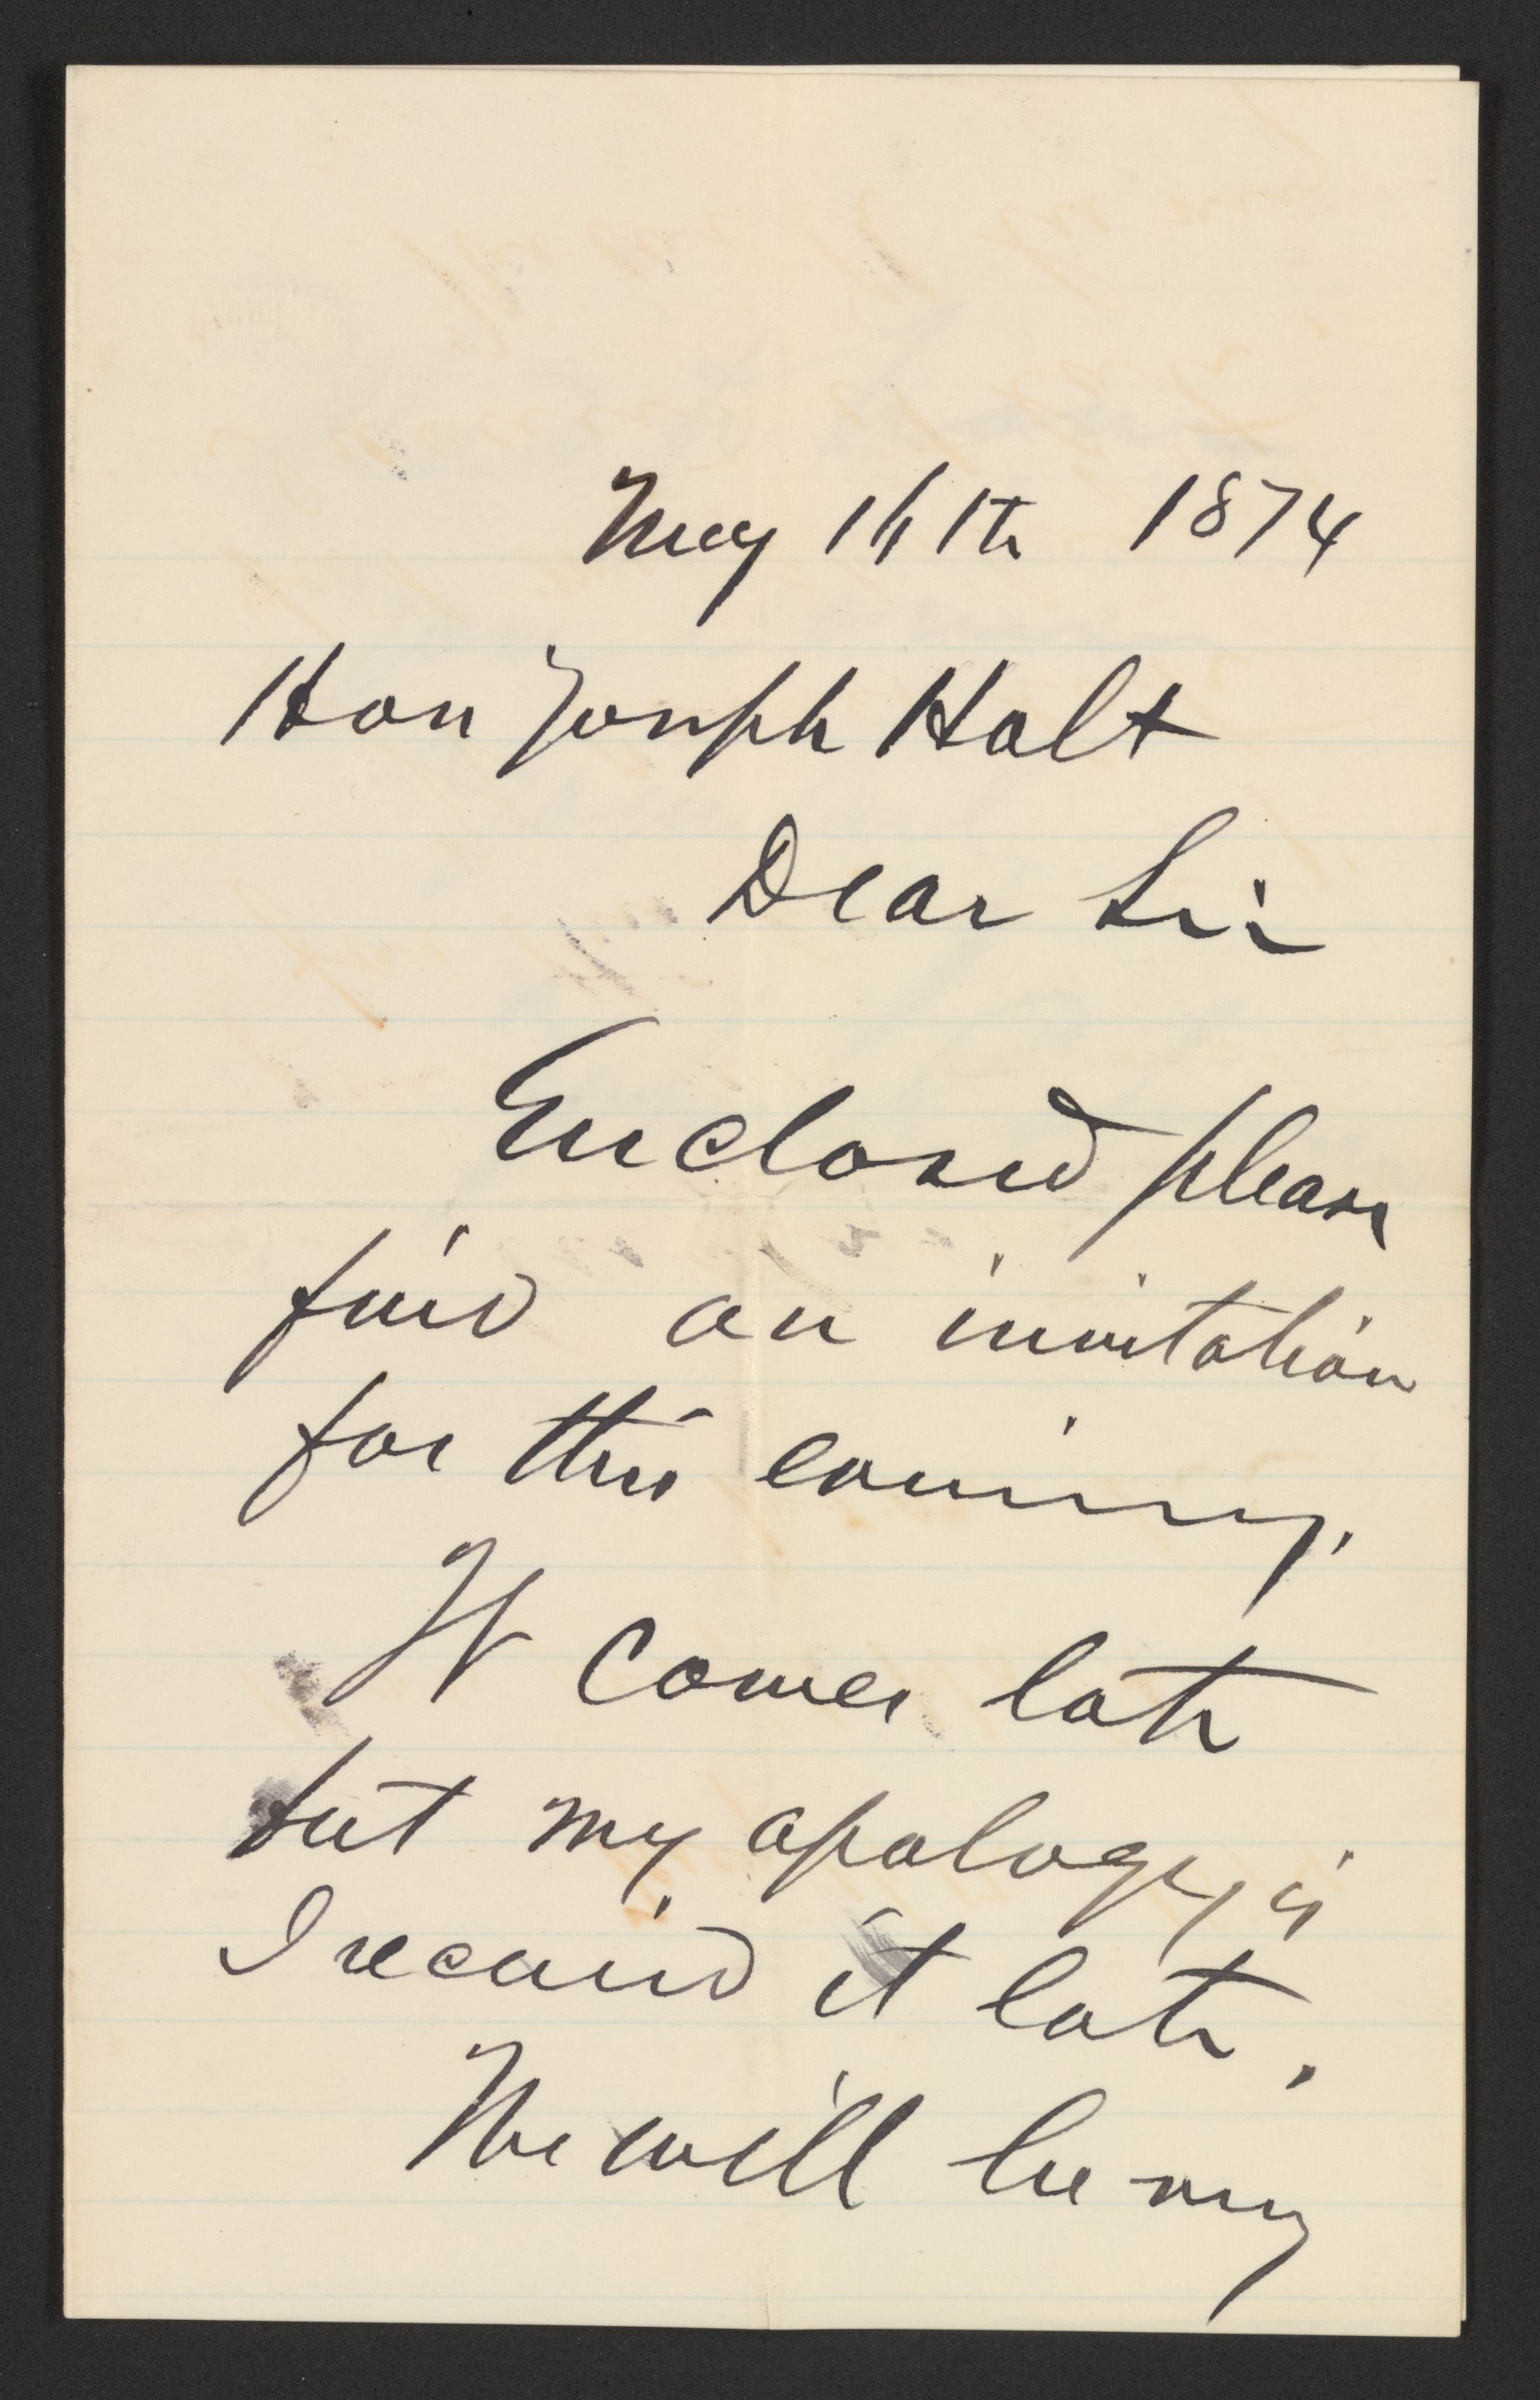 May 1874
Hon Joseph Holt
Dear Sir
Enclosed please
find an invitation
for this evening.
It comes late
but my apology is
I receivd it late.
We will be very